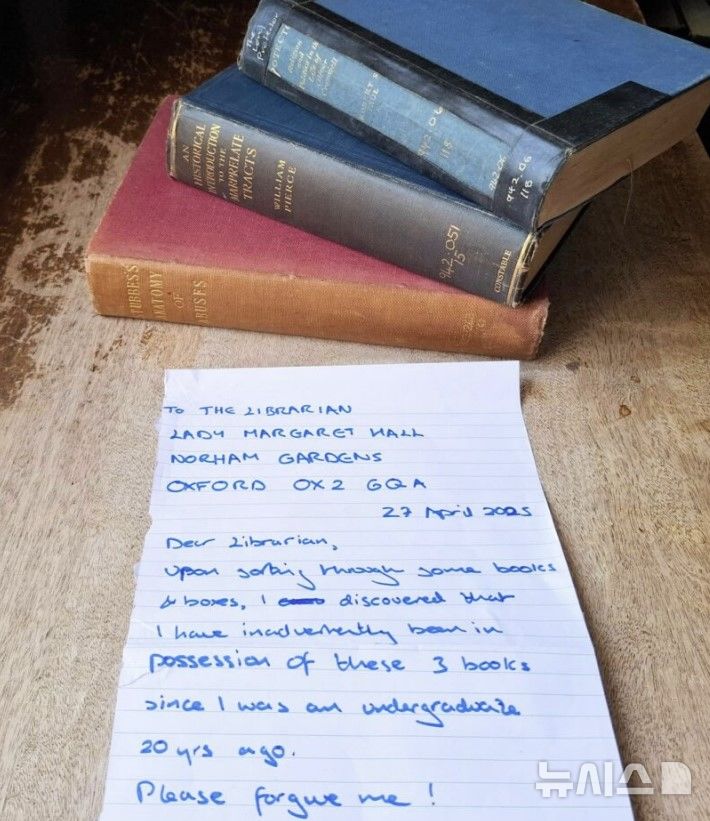 The Lord Protector
PROTECTI
942.06
115
942.06
942.06
115
AN
HISTORICAL
INTRODUCTION
TO THE
MARPRELATE
TRACTS
WILLIAM
PIERCE
942.051
15
CONSTABLE
STUBBES'S
ANATOMY
OF
ABUSES
TO THE LIBRARIAN
LADY MARGARET HALL
NORHAM GARDENS
OXFORD OX2 6QA
27 April 2025
Dear Librarian,
Upon sorting through some books
& boxes, I discovered that
I have inadvertently been in
possession of these 3 books
since I was an undergraduate
20 yrs ago.
Please forgive me!
뉴시스